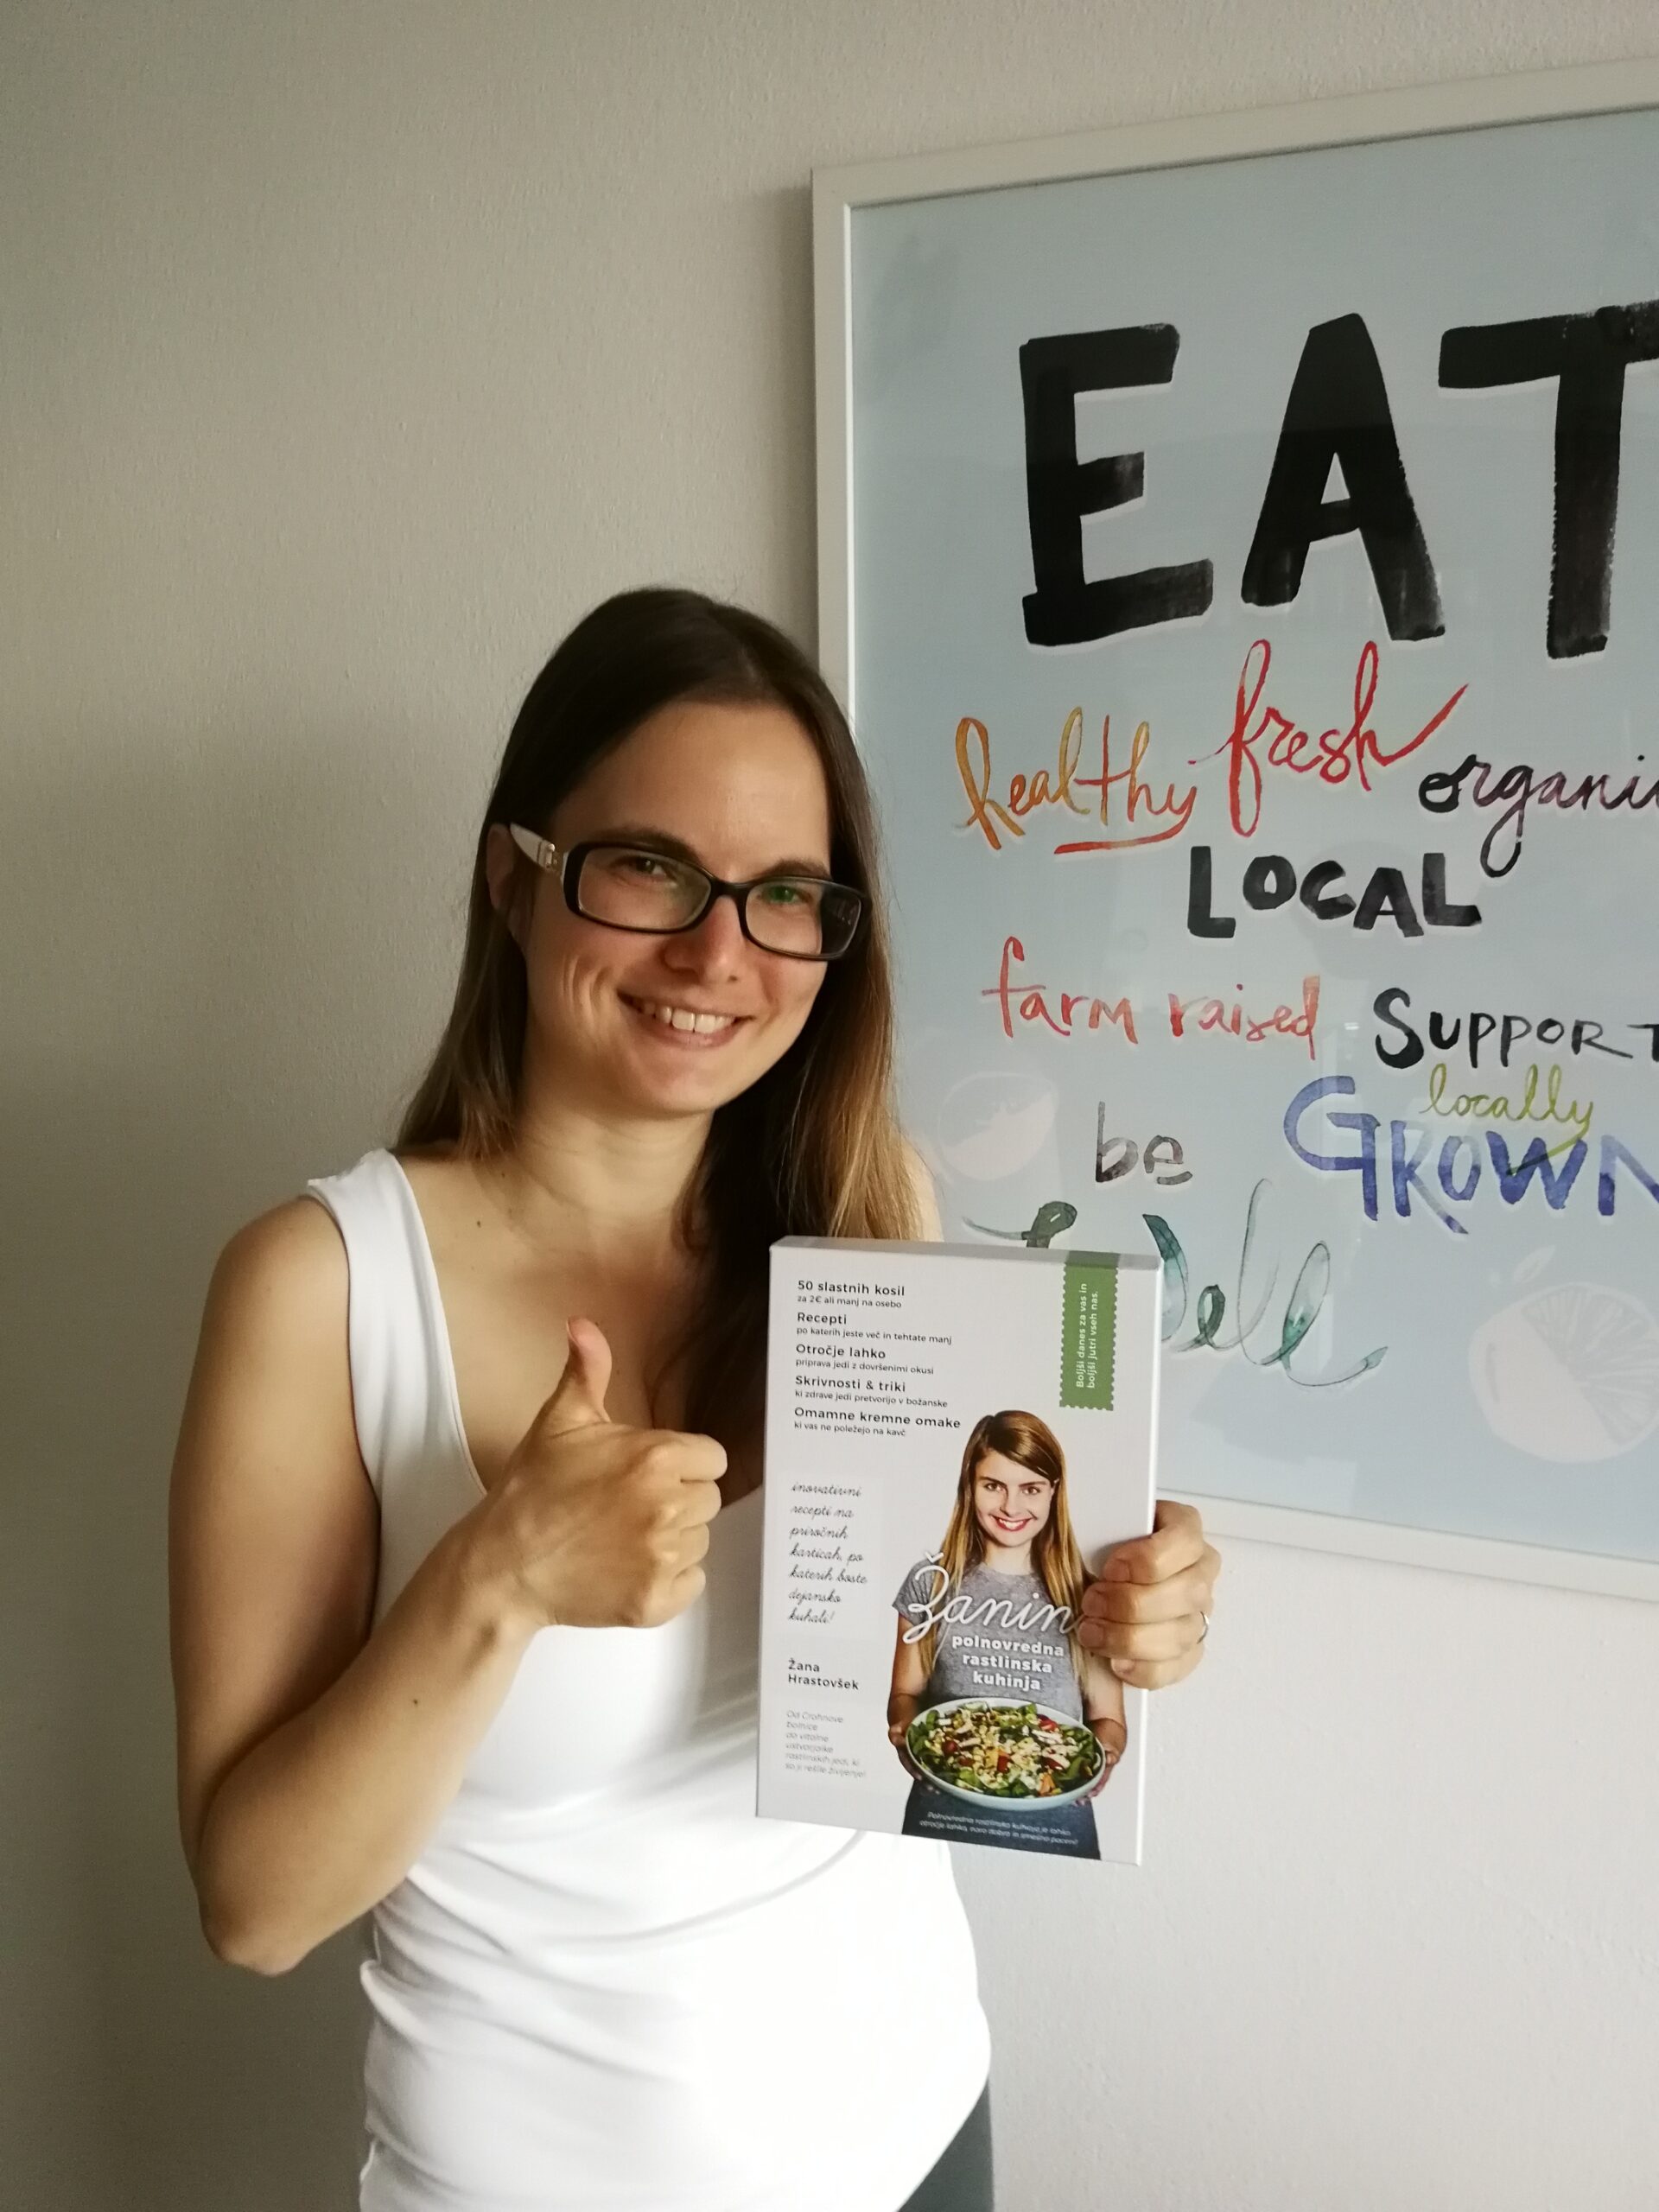 EAT
healthy fresh organi
LOCAL
farm raised SUPPORT
locally
be GROWN
Well
50 slastnih kosil
za 2€ ali manj na osebo
Recepti
po katerih jeste več in tehtate manj
Otročje lahko
priprava jedi z dovršenimi okusi
Skrivnosti & triki
ki zdrave jedi pretvorijo v božanske
Omamne kremne omake
ki vas ne poležejo na kavč
Boljši danes za vas in
boljši jutri vseh nas.
inovativni
recepti na
priročnih
karticah, po
katerih boste
dejansko
kuhali!
Žanin
polnovredna
rastlinska
kuhinja
Žana
Hrastovšek
Od Crohnove
bolnice
do vitalne
ustvarjalke
rastlinskih jedi, ki
so ji rešile življenje!
Polnovredna rastlinska kuhinja je lahko
otročje lahka, noro dobra in smešno poceni!